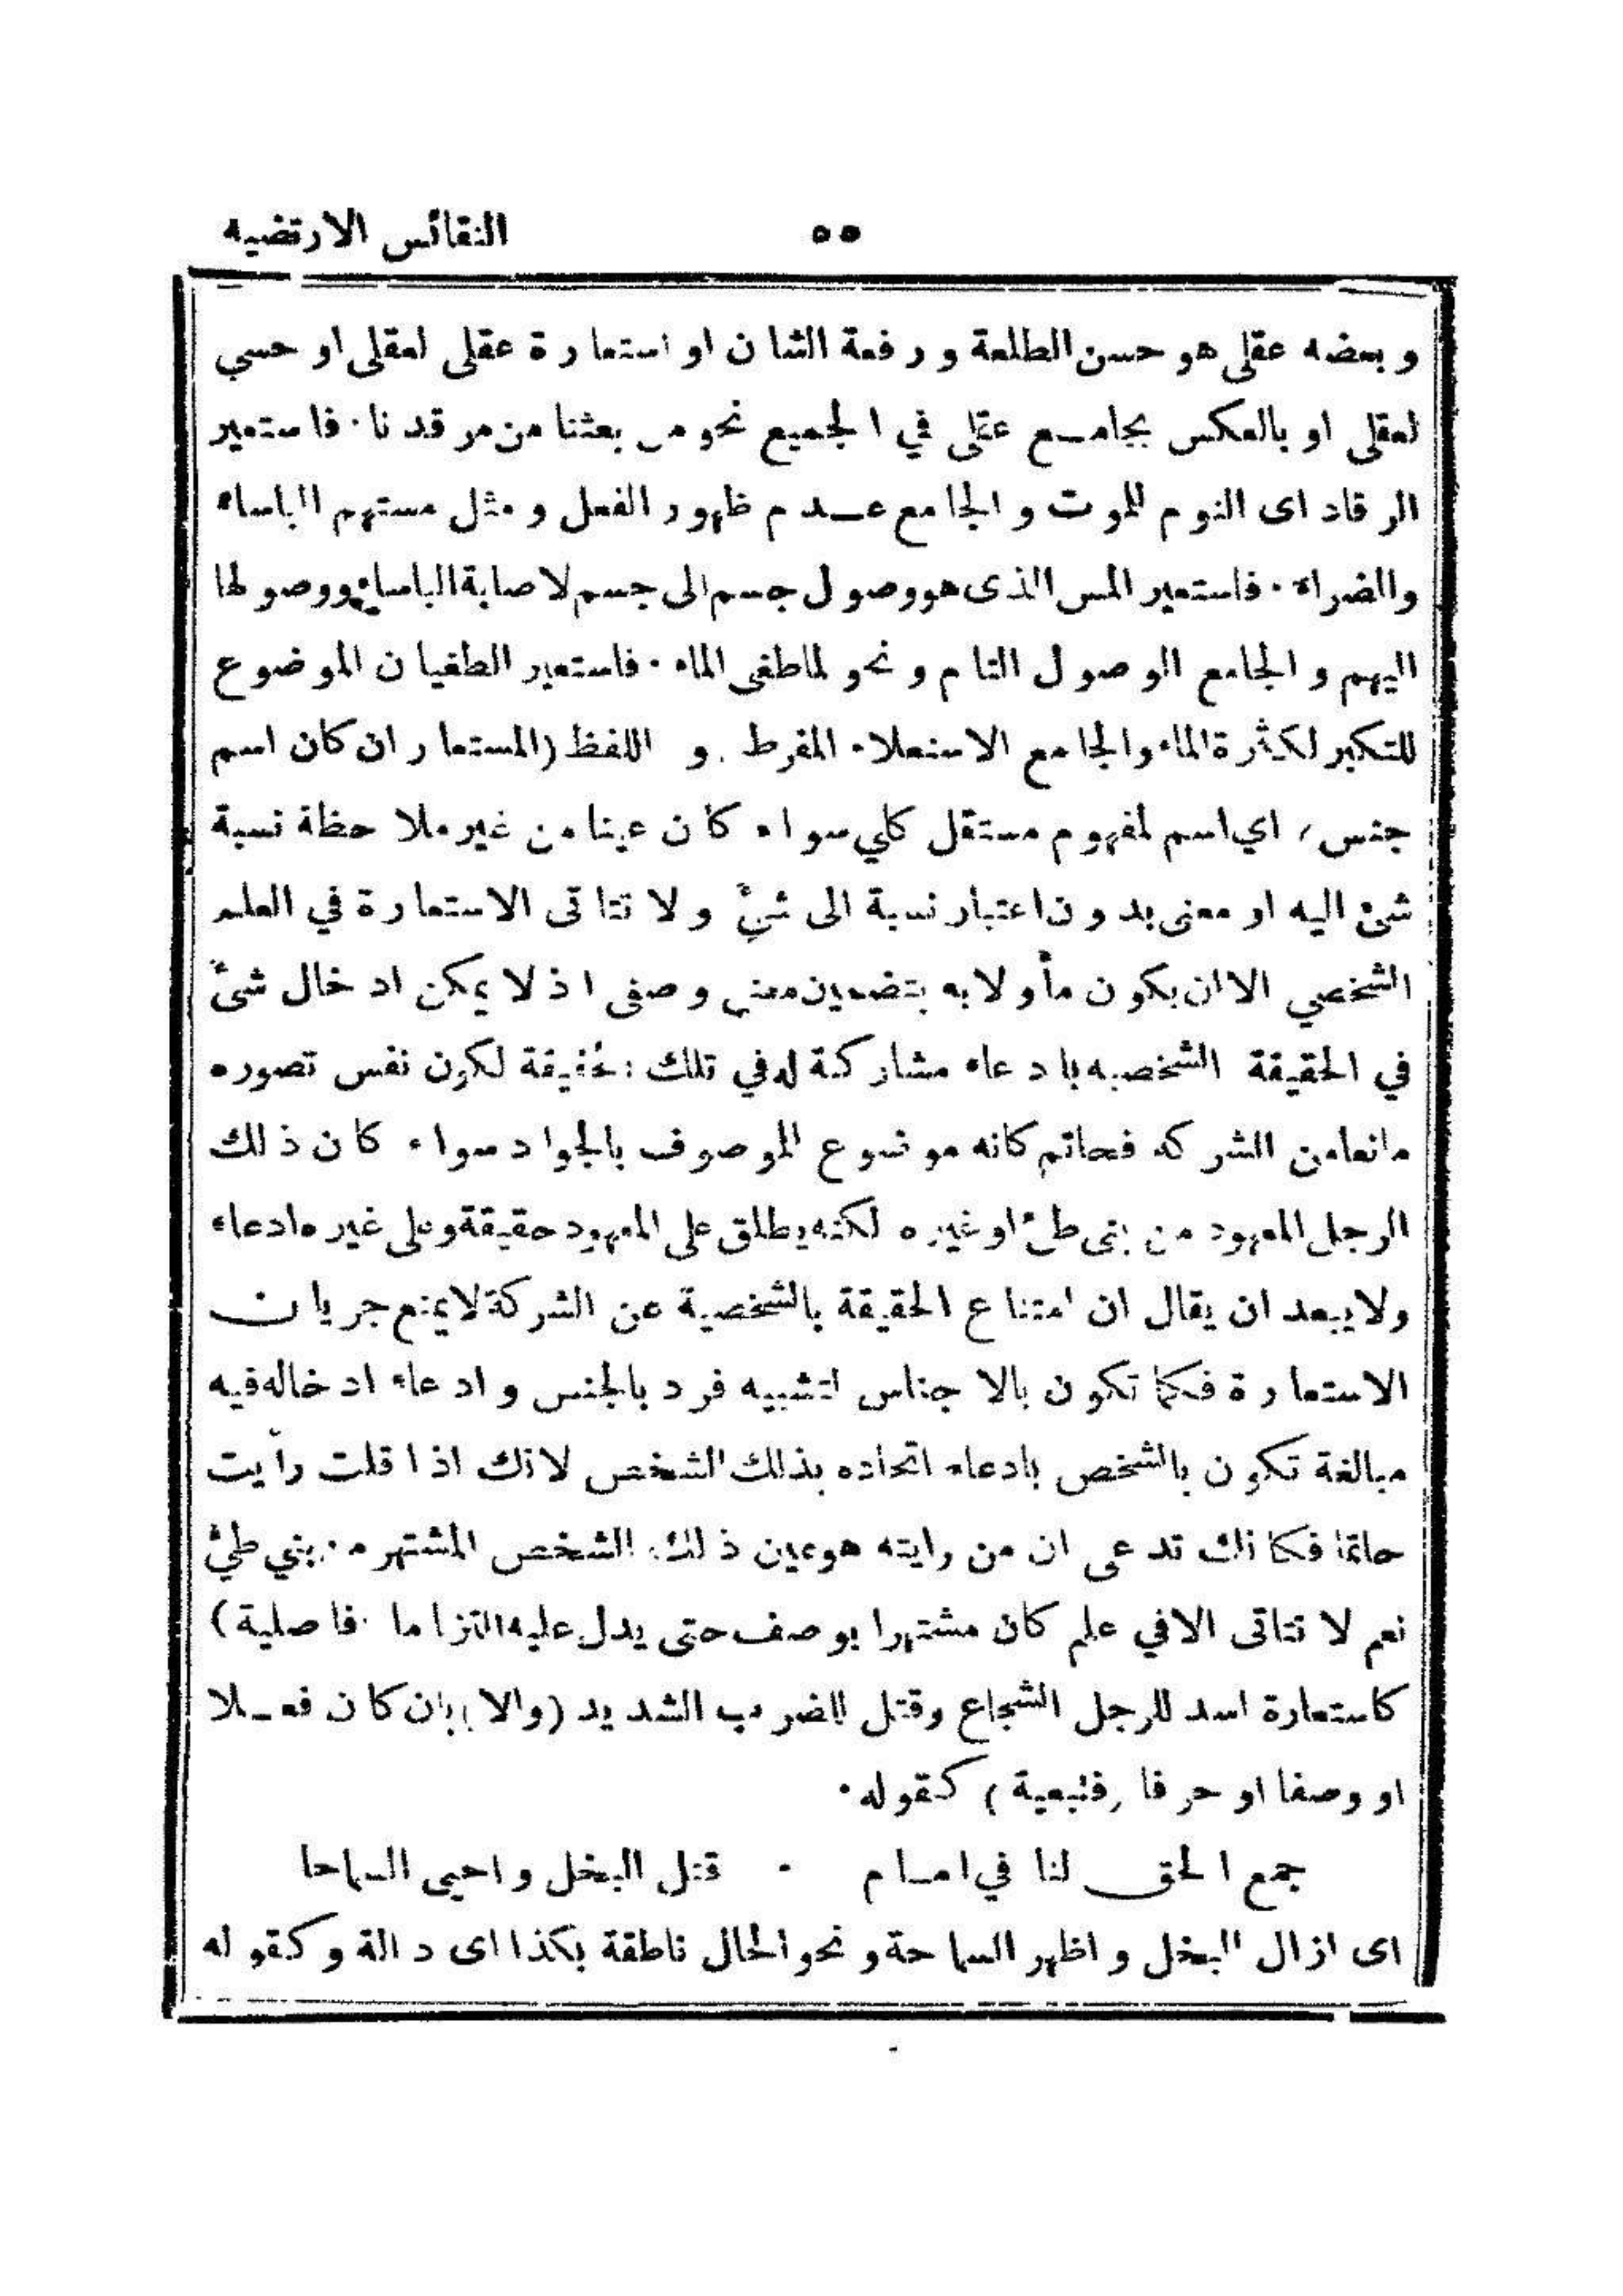 النقائس الارتضيه
٥٥
و بعضه عقلى هو حسن الطلعة و رفعة الشان او استعارة عقلى لعقلى او حسي
لعقلى او بالعكس بجامع عقلى في الجميع نحو من بعثنا من مرقدنا · فاستعير
الرقاد اى النوم للموت و الجامع عدم ظهور الفعل و مثل مستهم الباساء
والضراء · فاستعير المس الذى هو وصول جسم الى جسم لاصابة الباساء ووصولها
اليهم و الجامع الوصول التام و نحو لما طغى الماء · فاستعير الطغيان الموضوع
للتكبر لكثرة الماء والجامع الاستعلاء المفرط . و اللفظ (المستعار ان كان اسم
جنس) اي اسم لمفهوم مستقل كلي سواء كان عينا من غير ملاحظة نسبة
شئ اليه او معنى بدون اعتبار نسبة الى شئ و لا تتاتى الاستعارة في العلم
الشخصي الا ان يكون مأولا به بتضمين معنى وصفى اذ لا يمكن ادخال شئ
في الحقيقة الشخصيه بادعاء مشاركة له في تلك الحقيقة لكون نفس تصوره
مانعا من الشركه فحاتم كانه موضوع للموصوف بالجواد سواء كان ذلك
الرجل المعهود من بنى طئ او غيره لكنه يطلق على المعهود حقيقة وعلى غيره ادعاء
ولا يبعد ان يقال ان امتناع الحقيقة بالشخصية عن الشركة لا يمنع جريان
الاستعارة فكما تكون بالاجناس لتشبيه فرد بالجنس و ادعاء ادخاله فيه
مبالغة تكون بالشخص بادعاء اتحاده بذلك الشخص لانك اذا قلت رأيت
حاتما فكانك تدعى ان من رايته هو عين ذلك الشخص المشتهر من بني طئ
نعم لا تتاتى الا في علم كان مشتهرا بوصف حتى يدل عليه التزاما (فاصلية)
كاستعارة اسد للرجل الشجاع وقتل للضرب الشديد (والا) بان كان فعلا
او وصفا او حرفا (فتبعية) كقوله ·
جمع الحق لنا في امام · قتل البخل و احيى السماحا
اى ازال البخل و اظهر السماحة و نحو الحال ناطقة بكذا اى دالة و كقوله